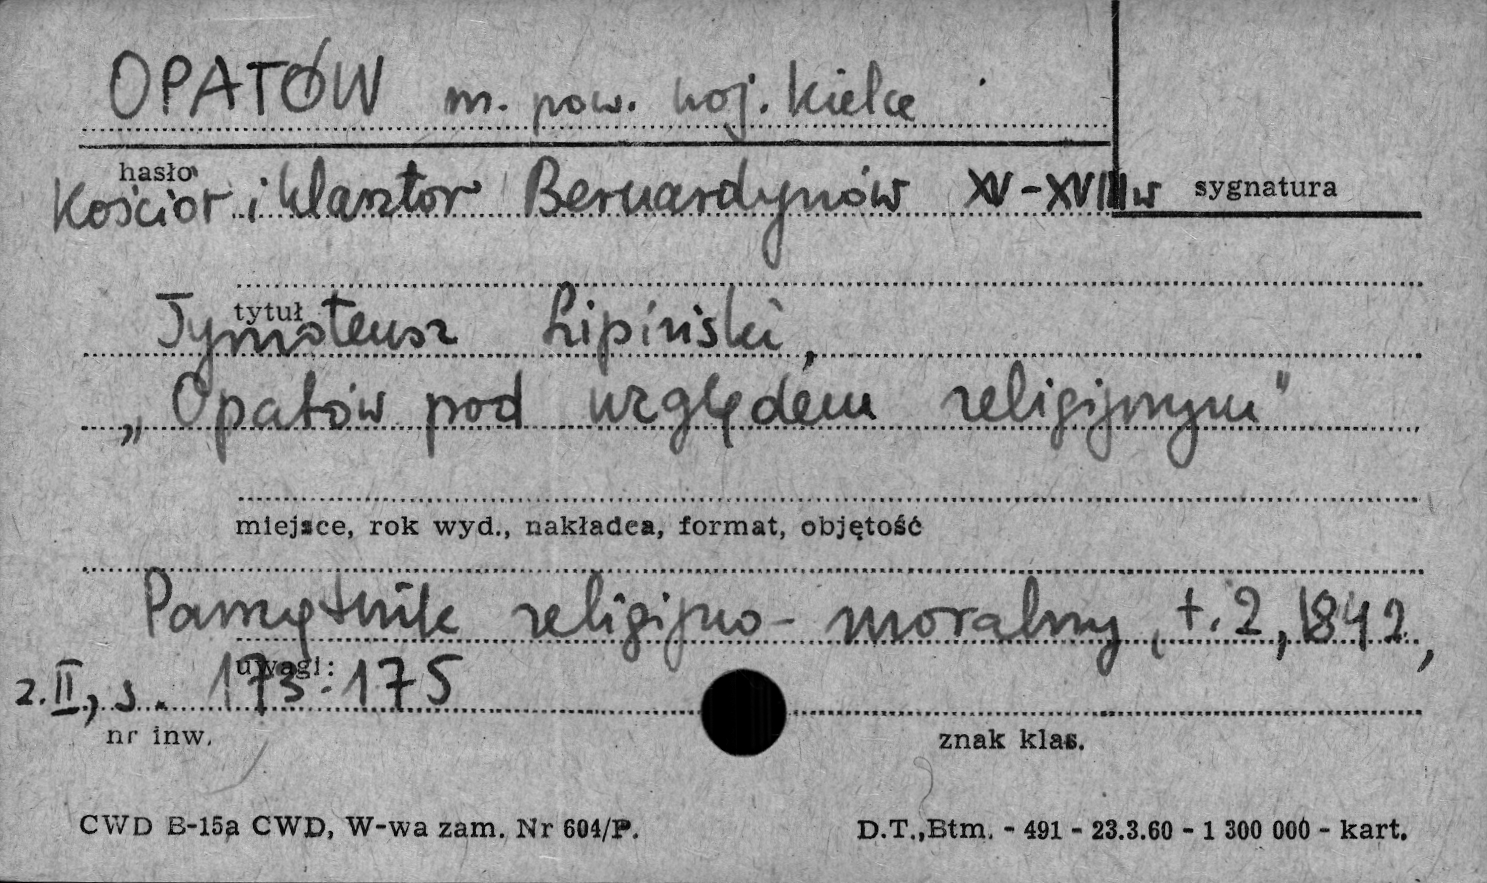 OPATÓW m. pow. woj. Kielce
hasło
Kościół i klasztor Bernardynów XV-XVIII w
sygnatura
tytuł
Tymoteusz Lipiński,
„Opatów pod względem religijnym"
miejsce, rok wyd., nakładca, format, objętość
Pamiętnik religijno-moralny, t. 2, 1842,
uwagi:
z. II, s. 173-175
nr inw.
znak klas.
CWD B-15a CWD, W-wa zam. Nr 604/P.
D.T., Btm. - 491 - 23.3.60 - 1 300 000 - kart.